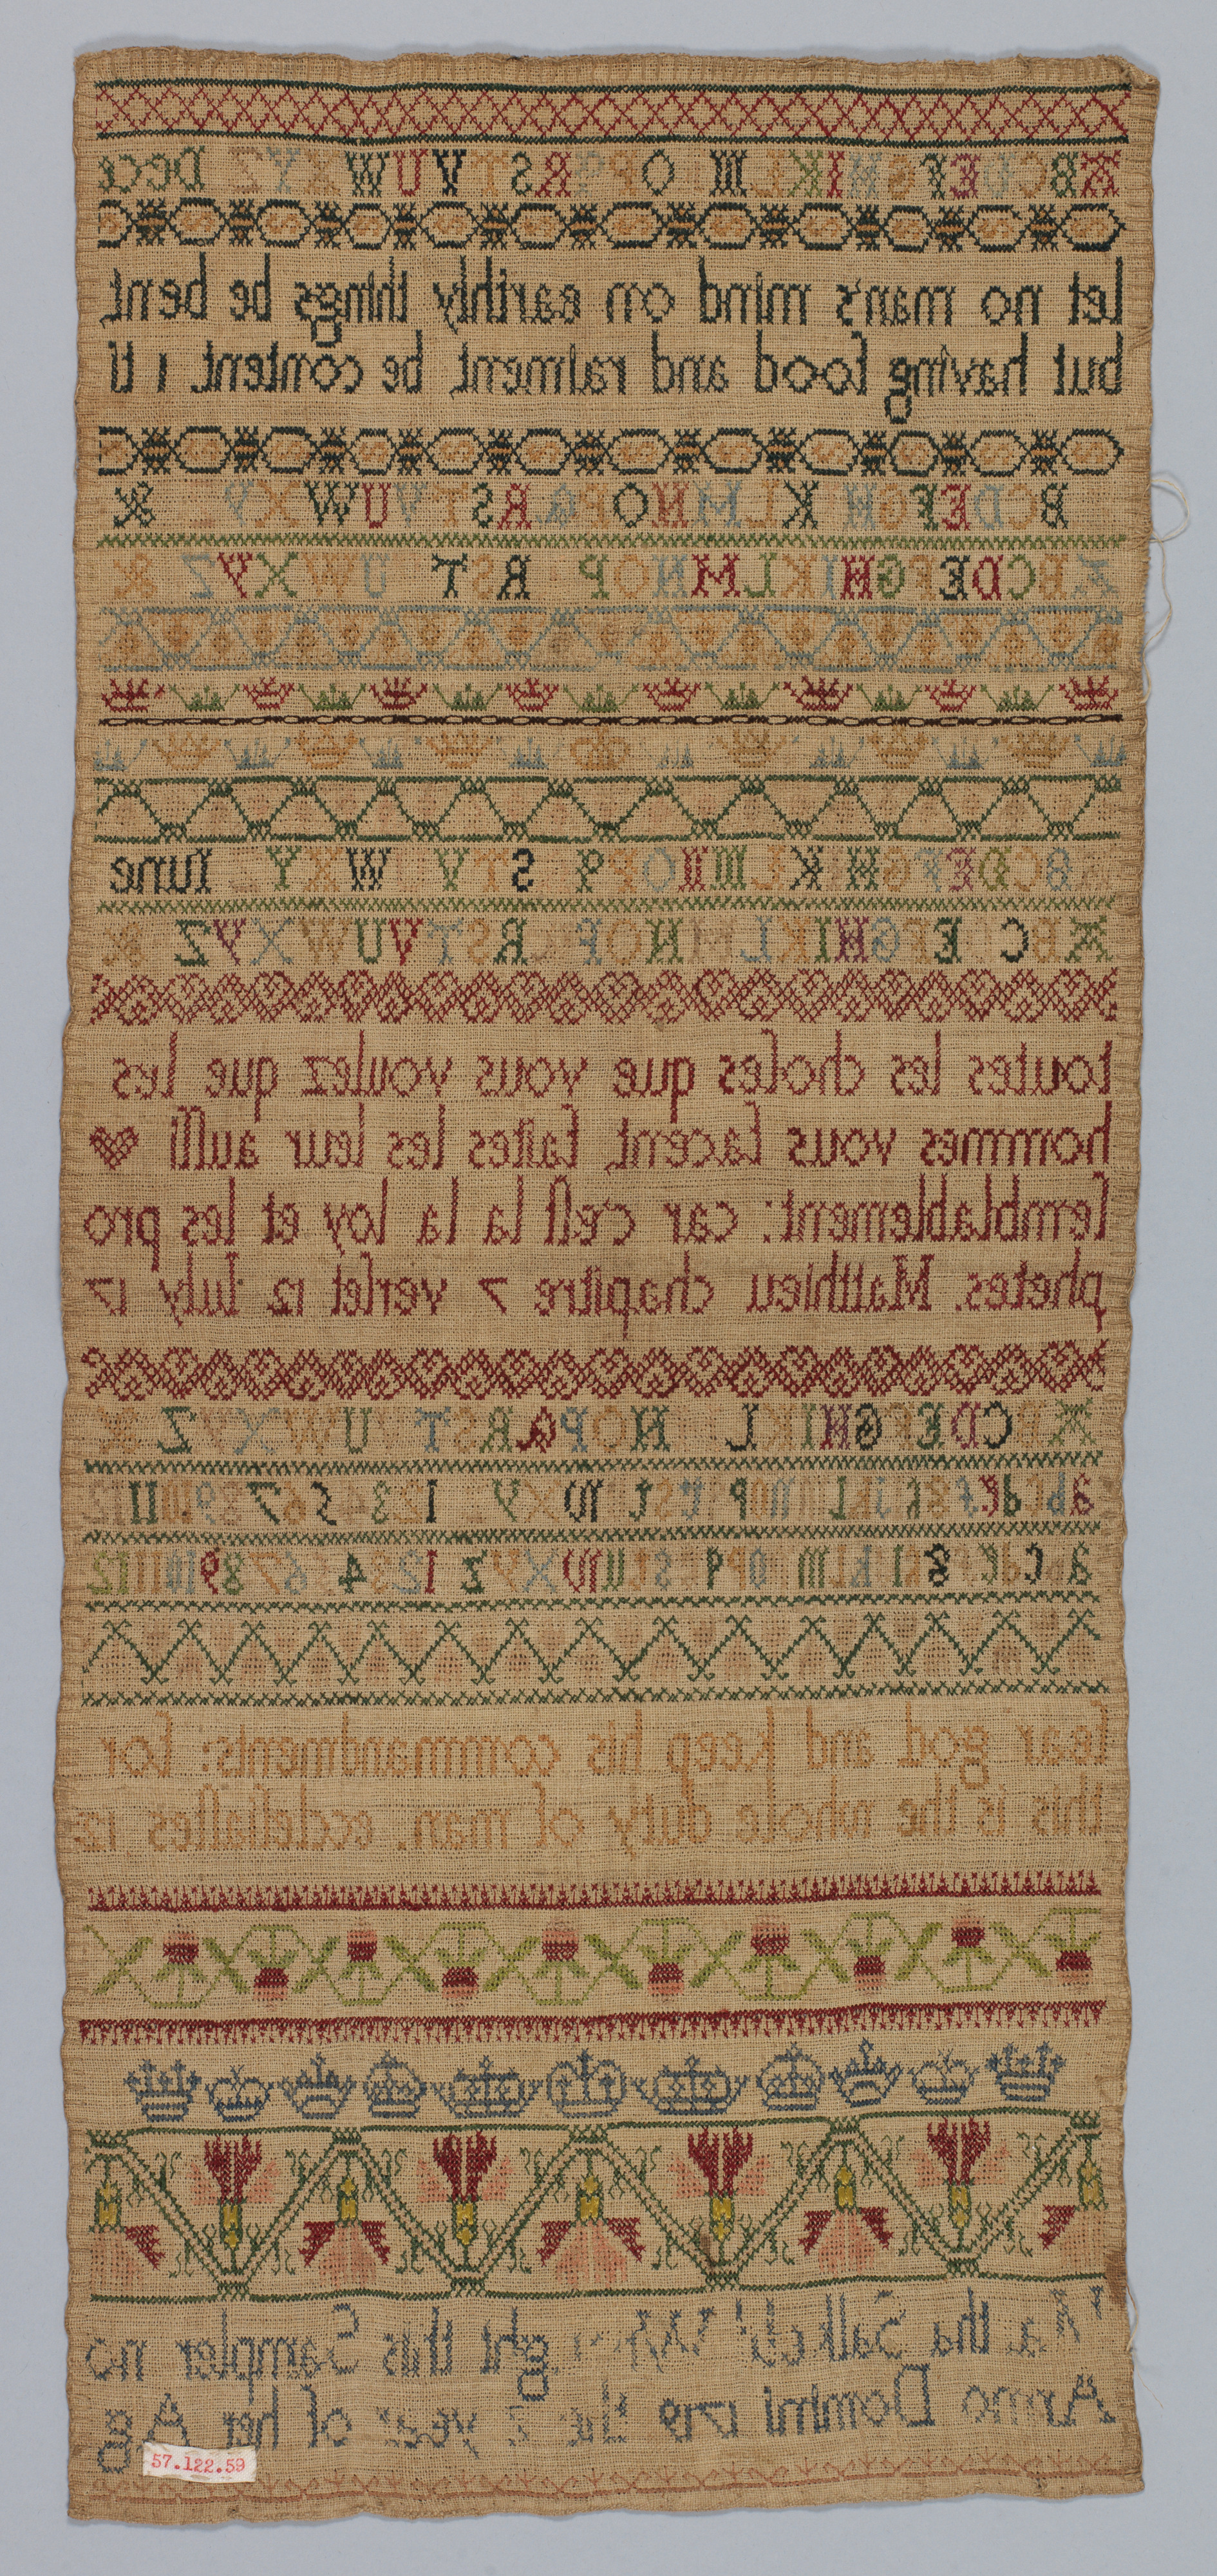 ABCDEFGHIKL M O P Q R S T V U W X Y Z Dece
let no man's mind on earthly things be bent
but having food and raiment be content 1 ti
BCDEFGH K LMNOPQRSTVUW X Y &
ABCDEFGHIKLMNOP RST UWXYZ &
BCDEFGHIKL M O P q S T V W X Y Iune
ABC EFGHIKLMNOP RSTVUWXYZ &
toutes les choſes que vous voulez que les
hommes vous facent, faites les leur auſſi
ſemblablement: car c'eſt la la loy et les pro
phetes. Matthieu chapitre 7 verſet 12 Iuly 17
ABCDEFGHIKL NOPQRST UWXYZ &
abcdefghiklmopqrstuwxy 1 2 3 4 5 6 7 8 9 10 11 12
abcdefghiklmnopqrstuwxyz 1 2 3 4 5 6 7 8 9 10 11 12
fear god and keep his commandments: for
this is the whole duty of man. eccleſiaſtes 12
Martha Salkeld this Sampler
Anno Domini 1719 the year of her Ag
57.122.59